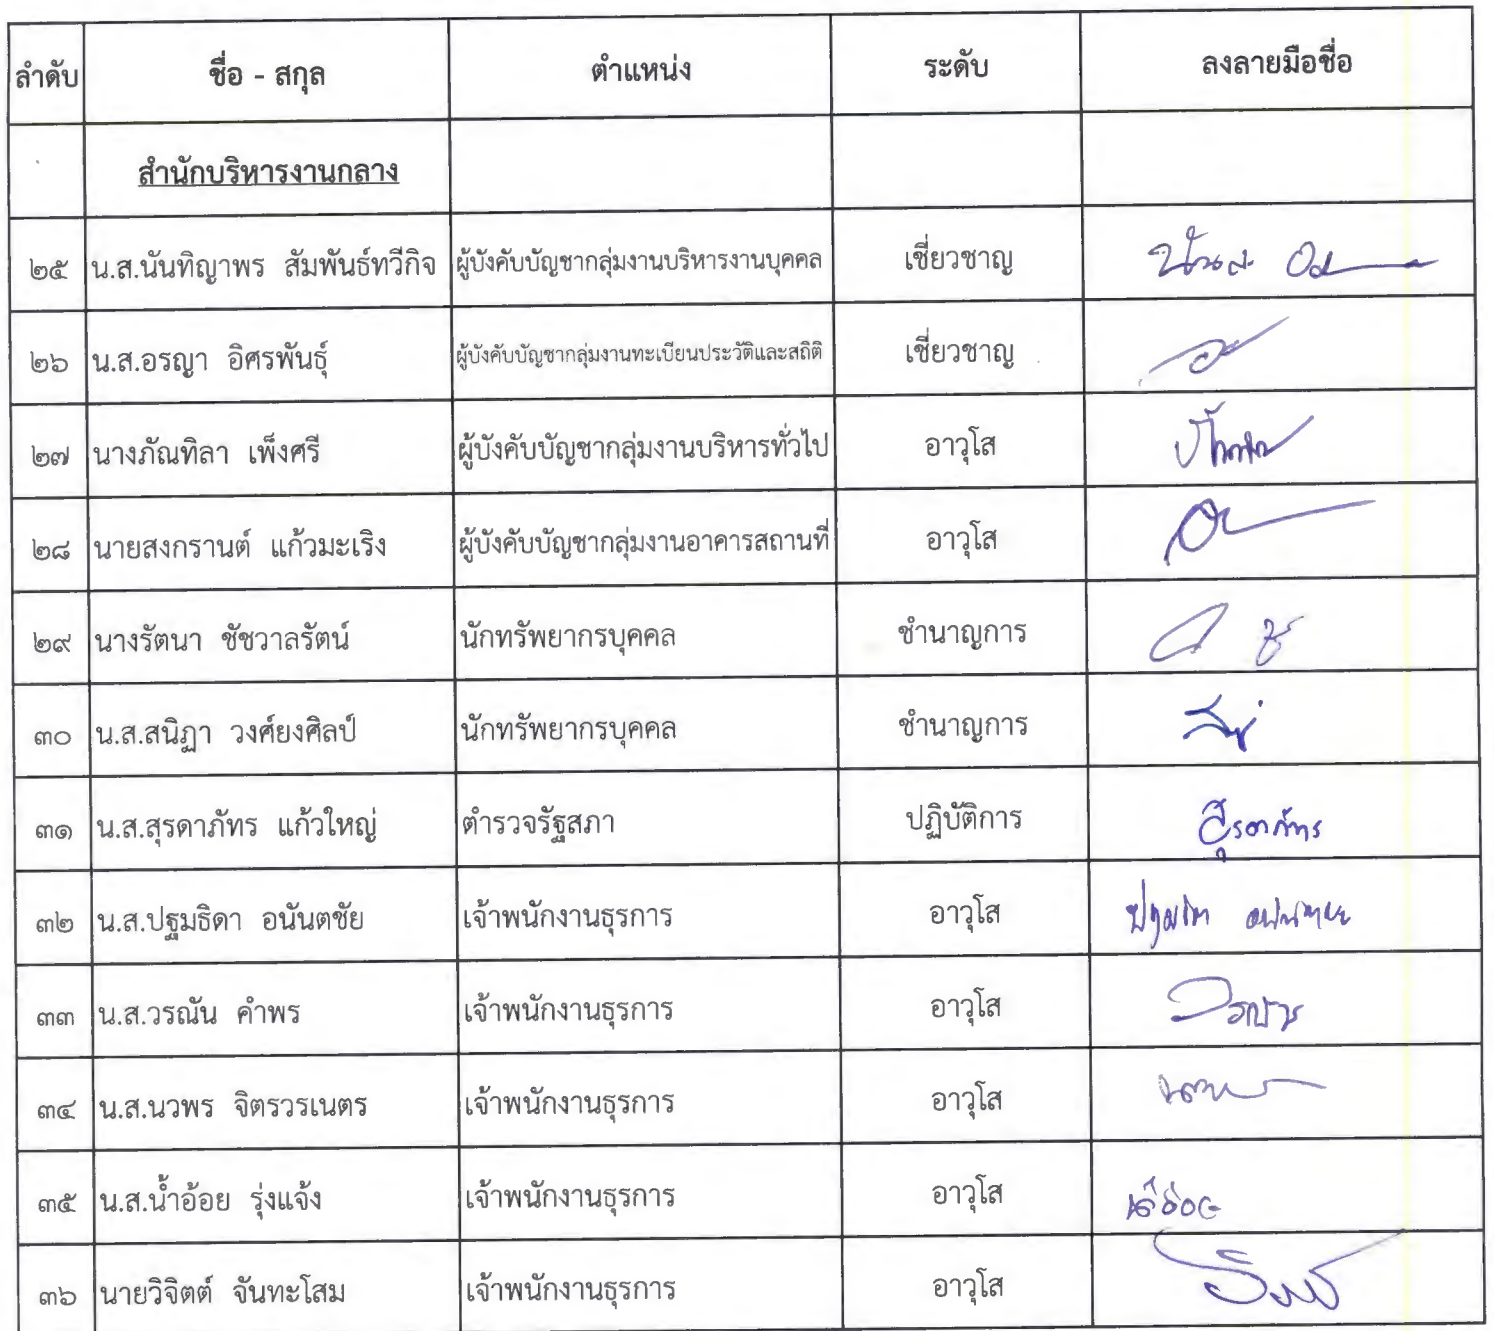 ลำดับ ชื่อ - สกุล ตำแหน่ง ระดับ ลงลายมือชื่อ
สำนักบริหารงานกลาง
๒๕ น.ส.นันทิญาพร สัมพันธ์ทวีกิจ ผู้บังคับบัญชากลุ่มงานบริหารงานบุคคล เชี่ยวชาญ
๒๖ น.ส.อรญา อิศรพันธุ์ ผู้บังคับบัญชากลุ่มงานทะเบียนประวัติและสถิติ เชี่ยวชาญ
๒๗ นางภัณฑิลา เพ็งศรี ผู้บังคับบัญชากลุ่มงานบริหารทั่วไป อาวุโส
๒๘ นายสงกรานต์ แก้วมะเริง ผู้บังคับบัญชากลุ่มงานอาคารสถานที่ อาวุโส
๒๙ นางรัตนา ชัชวาลรัตน์ นักทรัพยากรบุคคล ชำนาญการ
๓๐ น.ส.สนิฏา วงศ์ยงศิลป์ นักทรัพยากรบุคคล ชำนาญการ
๓๑ น.ส.สุรดาภัทร แก้วใหญ่ ตำรวจรัฐสภา ปฏิบัติการ สุรดาภัทร
๓๒ น.ส.ปฐมธิดา อนันตชัย เจ้าพนักงานธุรการ อาวุโส
๓๓ น.ส.วรณัน คำพร เจ้าพนักงานธุรการ อาวุโส
๓๔ น.ส.นวพร จิตรวรเนตร เจ้าพนักงานธุรการ อาวุโส
๓๕ น.ส.น้ำอ้อย รุ่งแจ้ง เจ้าพนักงานธุรการ อาวุโส
๓๖ นายวิจิตต์ จันทะโสม เจ้าพนักงานธุรการ อาวุโส